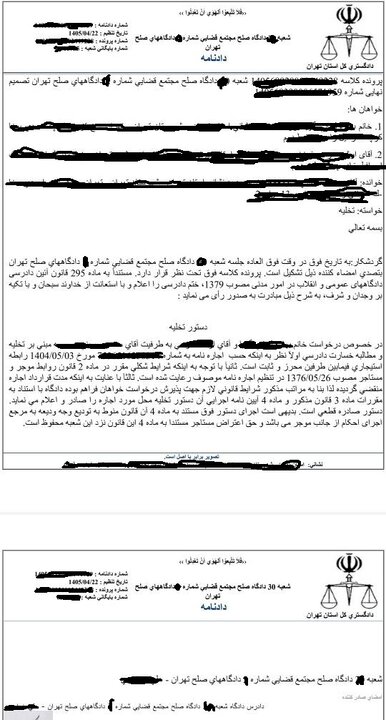 ،،فَلا تَتَّبِعُوا الْهَوى أَنْ تَعْدِلُوا،،
شماره دادنامه :
تاریخ تنظیم : 1405/04/22
شماره پرونده :
شماره بایگانی شعبه :
شعبه دادگاه صلح مجتمع قضایی شماره دادگاههای صلح
تهران
دادنامه
دادگستری کل استان تهران
پرونده کلاسه شعبه دادگاه صلح مجتمع قضایی شماره دادگاههای صلح تهران تصمیم
نهایی شماره
خواهان ها:
1. خانم
2. آقای
خوانده:
خواسته: تخلیه
بسمه تعالي
گردشکار:به تاریخ فوق در وقت فوق العاده جلسه شعبه دادگاه صلح مجتمع قضایی شماره دادگاههای صلح تهران
بتصدی امضاء کننده ذیل تشکیل است. پرونده کلاسه فوق تحت نظر قرار دارد. مستنداً به ماده 295 قانون آئین دادرسی
دادگاههای عمومی و انقلاب در امور مدنی مصوب 1379، ختم دادرسی را اعلام و با استعانت از خداوند سبحان و با تکیه
بر وجدان و شرف، به شرح ذیل مبادرت به صدور رأی می نماید :
دستور تخلیه
در خصوص درخواست خانم و آقای به طرفیت آقای مبنی بر تخلیه
و مطالبه خسارت دادرسی اولاً نظر به اینکه حسب اجاره نامه به شماره مورخ 1404/05/03 رابطه
استیجاری فیمابین طرفین محرز و ثابت است. ثانیا با توجه به اینکه شرایط شکلی مقرر در ماده 2 قانون روابط موجر و
مستاجر مصوب 1376/05/26 در تنظیم اجاره نامه موصوف رعایت شده است. ثالثاً با عنایت به اینکه مدت قرارداد اجاره
منقضی گردیده لذا بنا به مراتب مذکور شرایط قانونی لازم جهت پذیرش درخواست خواهان فراهم بوده دادگاه با استناد به
مقررات ماده 3 قانون مذکور و ماده 4 آیین نامه اجرایی آن دستور تخلیه محل مورد اجاره را صادر و اعلام می نماید.
دستور صادره قطعی است. بدیهی است اجرای دستور فوق مستند به ماده 4 آن قانون منوط به تودیع وجه ودیعه به مرجع
اجرای احکام از جانب موجر می باشد و حق اعتراض مستاجر مستندا به ماده 4 این قانون نزد این شعبه محفوظ است.
تصویر برابر با اصل است.
نشانی:
،،فَلا تَتَّبِعُوا الْهَوى أَنْ تَعْدِلُوا،،
شماره دادنامه :
تاریخ تنظیم : 1405/04/22
شماره پرونده :
شماره بایگانی شعبه :
شعبه 30 دادگاه صلح مجتمع قضایی شماره دادگاههای صلح
تهران
دادنامه
دادگستری کل استان تهران
شعبه دادگاه صلح مجتمع قضایی شماره دادگاههای صلح تهران -
امضای صادر کننده
دادرس دادگاه شعبه دادگاه صلح مجتمع قضایی شماره دادگاههای صلح تهران -